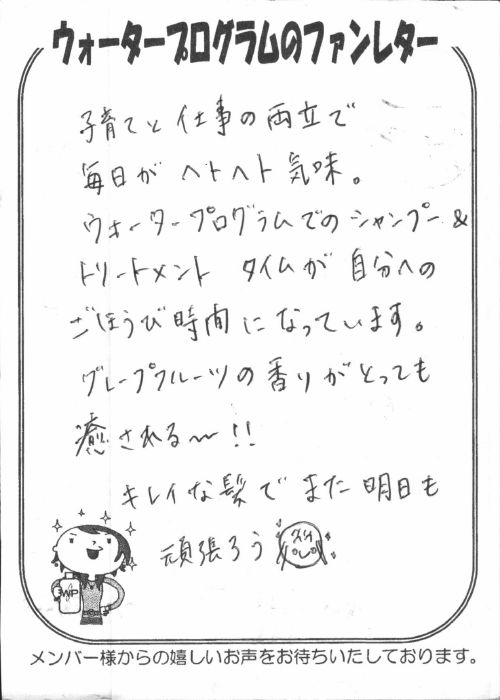 ウォータープログラムのファンレター
子育てと仕事の両立で
毎日がヘトヘト気味。
ウォータープログラムでのシャンプー&
トリートメント タイムが自分への
ごほうび時間になっています。
グレープフルーツの香りがとっても
癒される〜!!
キレイな髪でまた明日も
頑張ろう
WP
メンバー様からの嬉しいお声をお待ちいたしております。